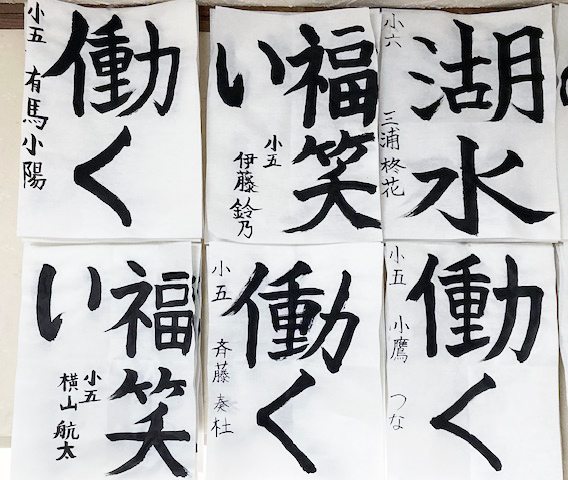 働く
小五 有馬小陽
福笑い
小五
伊藤鈴乃
湖水
小六 三浦柊花
福笑い
小五
横山航太
働く
小五 斉藤奏杜
働く
小五 小鷹つな